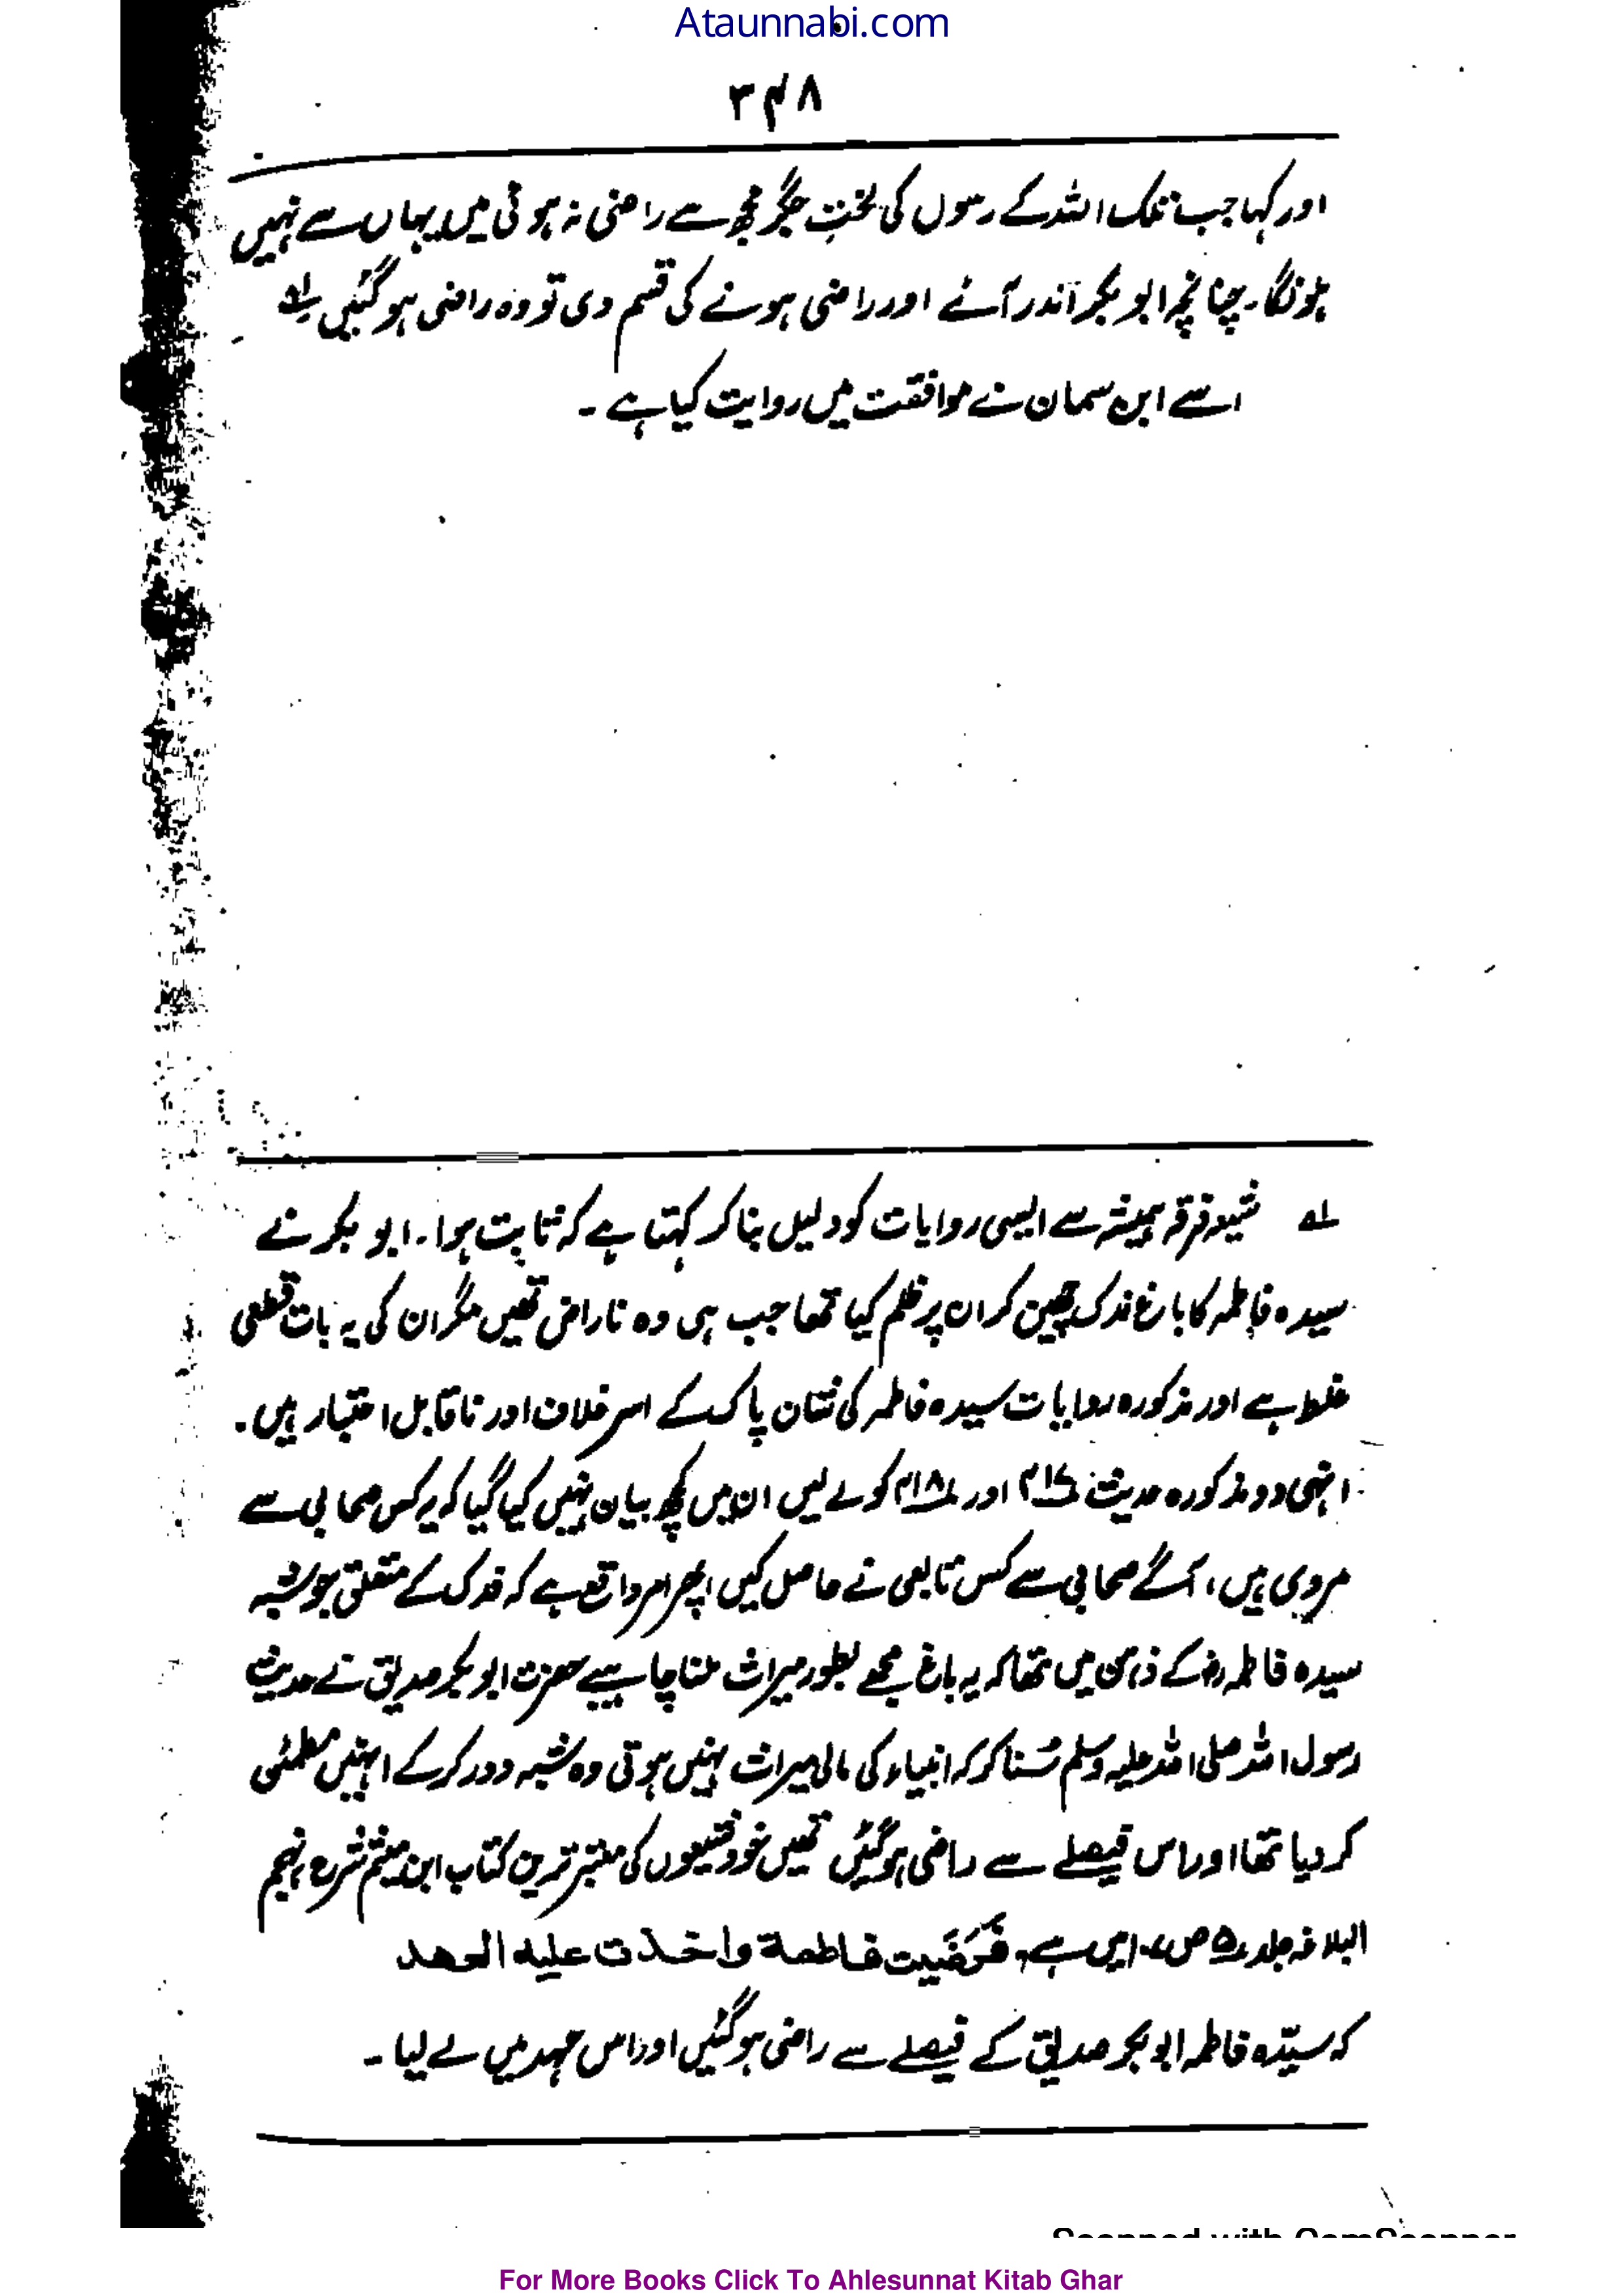 Ataunnabi.com
۳۴۸
اور کہا جب تک اللہ کے رسول کی لختِ جگر مجھ سے راضی نہ ہوئی میں یہاں سے نہیں
ہلونگا۔ چنانچہ ابو بکر اندر آئے اور راضی ہونے کی قسم دی تو وہ راضی ہوگئیں لہ
اسے ابن سمان نے موافقت میں روایت کیا ہے۔
لہ شیعہ فرقہ ہمیشہ سے ایسی روایات کو دلیل بنا کر کہتا ہے کہ ثابت ہوا۔ ابو بکر نے
سیدہ فاطمہ کا باغ فدک چھین کر ان پر ظلم کیا تھا جب ہی وہ ناراض تھیں مگر ان کی یہ بات قطعی
غلط ہے اور مذکورہ روایات سیدہ فاطمہ کی شان پاک کے اسر خلاف اور ناقابل اعتبار ہیں۔
انہی دو مذکورہ حدیث اور کو لے لیں ان میں کچھ بیان نہیں کیا گیا کہ یہ کس صحابی سے
مروی ہیں، آگے صحابی سے کس تابعی نے حاصل کیں، پھر امر واقع ہے کہ فدک کے متعلق جو شبہ
سیدہ فاطمہ رضہ کے ذہن میں تھا کہ یہ باغ مجھے بطور میراث ملنا چاہیے حضرت ابو بکر صدیق نے حدیث
رسول اللہ صلی اللہ علیہ وسلم سُنا کر کہ انبیاء کی مالی میراث نہیں ہوتی وہ شبہ دور کر کے انہیں مطمئن
کر دیا تھا اور اس فیصلے سے راضی ہوگئی تھیں خود شیعوں کی معتبر ترین کتاب ابن میثم شرح نہج
البلاغہ جلد ۵ ص ۱۰۷ میں ہے، فَرَضَيَت فاطمة واخذت عليه العهد
کہ سیّدہ فاطمہ ابو بکر صدیق کے فیصلے سے راضی ہوگئیں اور اس عہد میں لے لیا۔
For More Books Click To Ahlesunnat Kitab Ghar